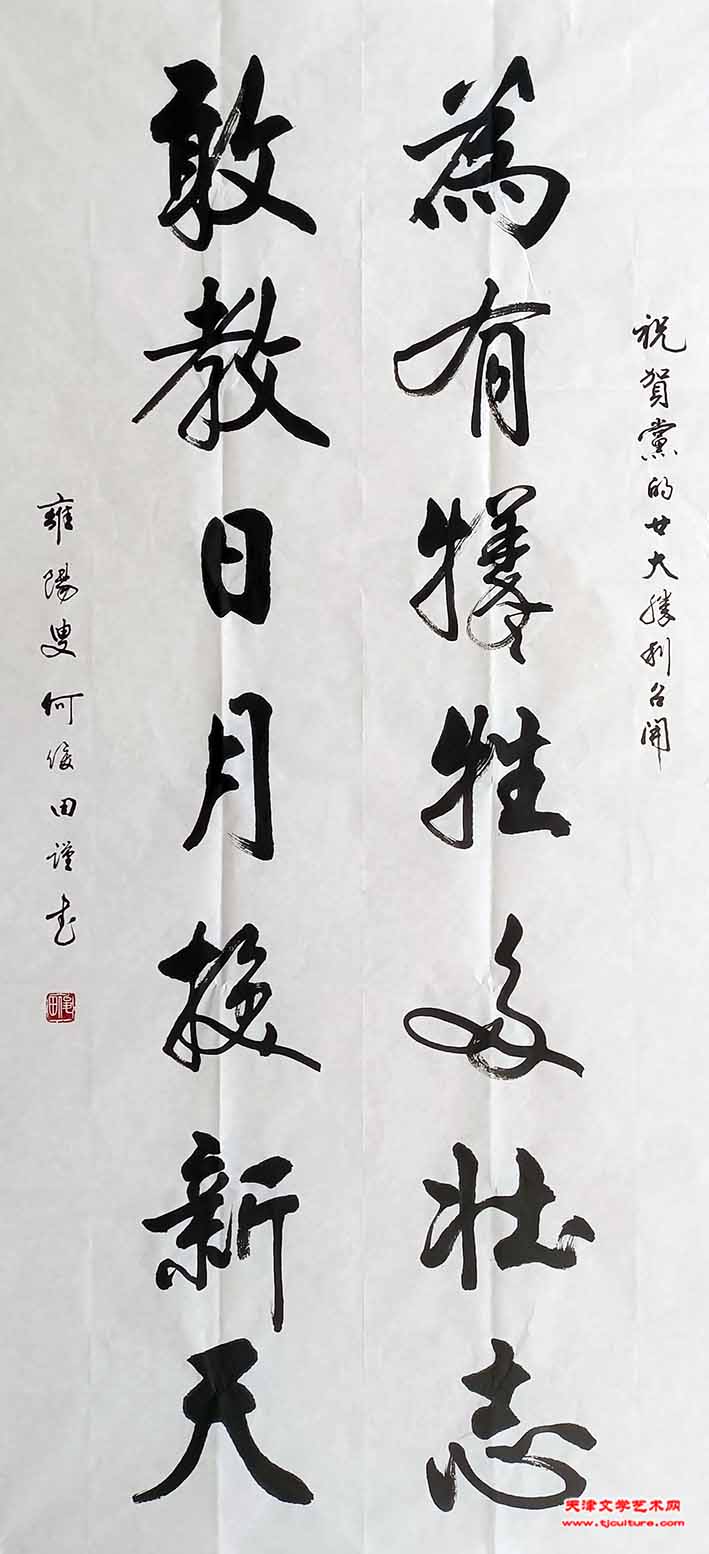 祝賀黨的廿大勝利召開
為有犧牲多壯志
敢教日月換新天
雍陽叟何俊田謹書
天津文学艺术网
www.tjculture.com